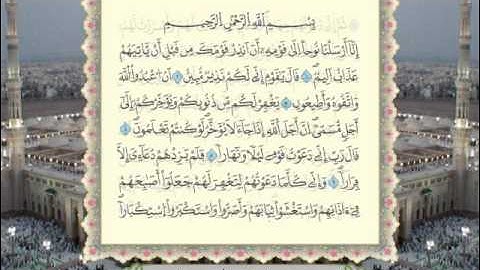 بِسْمِ اللَّهِ الرَّحْمَٰنِ الرَّحِيمِ
إِنَّا أَرْسَلْنَا نُوحًا إِلَىٰ قَوْمِهِ أَنْ أَنذِرْ قَوْمَكَ مِن قَبْلِ أَن يَأْتِيَهُمْ
عَذَابٌ أَلِيمٌ ١ قَالَ يَا قَوْمِ إِنِّي لَكُمْ نَذِيرٌ مُّبِينٌ ٢ أَنِ اعْبُدُوا اللَّهَ
وَاتَّقُوهُ وَأَطِيعُونِ ٣ يَغْفِرْ لَكُم مِّن ذُنُوبِكُمْ وَيُؤَخِّرْكُمْ إِلَىٰ
أَجَلٍ مُّسَمًّى إِنَّ أَجَلَ اللَّهِ إِذَا جَاءَ لَا يُؤَخَّرُ لَوْ كُنتُمْ تَعْلَمُونَ ٤
قَالَ رَبِّ إِنِّي دَعَوْتُ قَوْمِي لَيْلًا وَنَهَارًا ٥ فَلَمْ يَزِدْهُمْ دُعَائِي إِلَّا
فِرَارًا ٦ وَإِنِّي كُلَّمَا دَعَوْتُهُمْ لِتَغْفِرَ لَهُمْ جَعَلُوا أَصَابِعَهُمْ
فِي آذَانِهِمْ وَاسْتَغْشَوْا ثِيَابَهُمْ وَأَصَرُّوا وَاسْتَكْبَرُوا اسْتِكْبَارًا